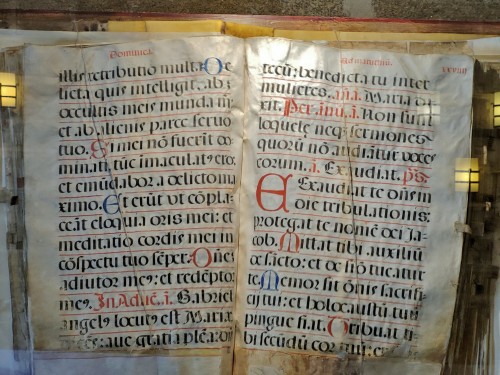 Dominica
illis retributio multa. De
licta quis intelligit. ab
occultis meis munda m
et ab alienis parce servo
tuo. Si mei nõ fuerit do
minati: tũc ĩmaculat⁹ ero:
et emũdabor a delicto ma
ximo. Et erũt ut cõpla
ceãt eloquia oris mei: et
meditatio cordis mei ĩ
cõspectu tuo sẽper. Dñe
adiutor me⁹: et redẽpto
me⁹. In Adue. ã. Gabriel
angel⁹ locut⁹ est Mariæ
dicẽs: aue gratia plẽa:
tecũ: benedicta tu inter
mulieres. añã. Maria di
xit. Per ãni. ã. Non sunt
loquele neq₃ sermones
quorũ nõ audiãtur voces
eorum. ã. Exaudiat. ps.
Exaudiat te dñs ĩ
die tribulationis:
protegat te nomẽ dei Ja
cob. Mittat tibi auxiliũ
de sãcto: et de siõ tueatur te
Memor sit oñis sacrifi
cij tui: et holocaustũ tuũ
pingue fiat. Tribuat ti
bi secũdũ cor tuũ: et